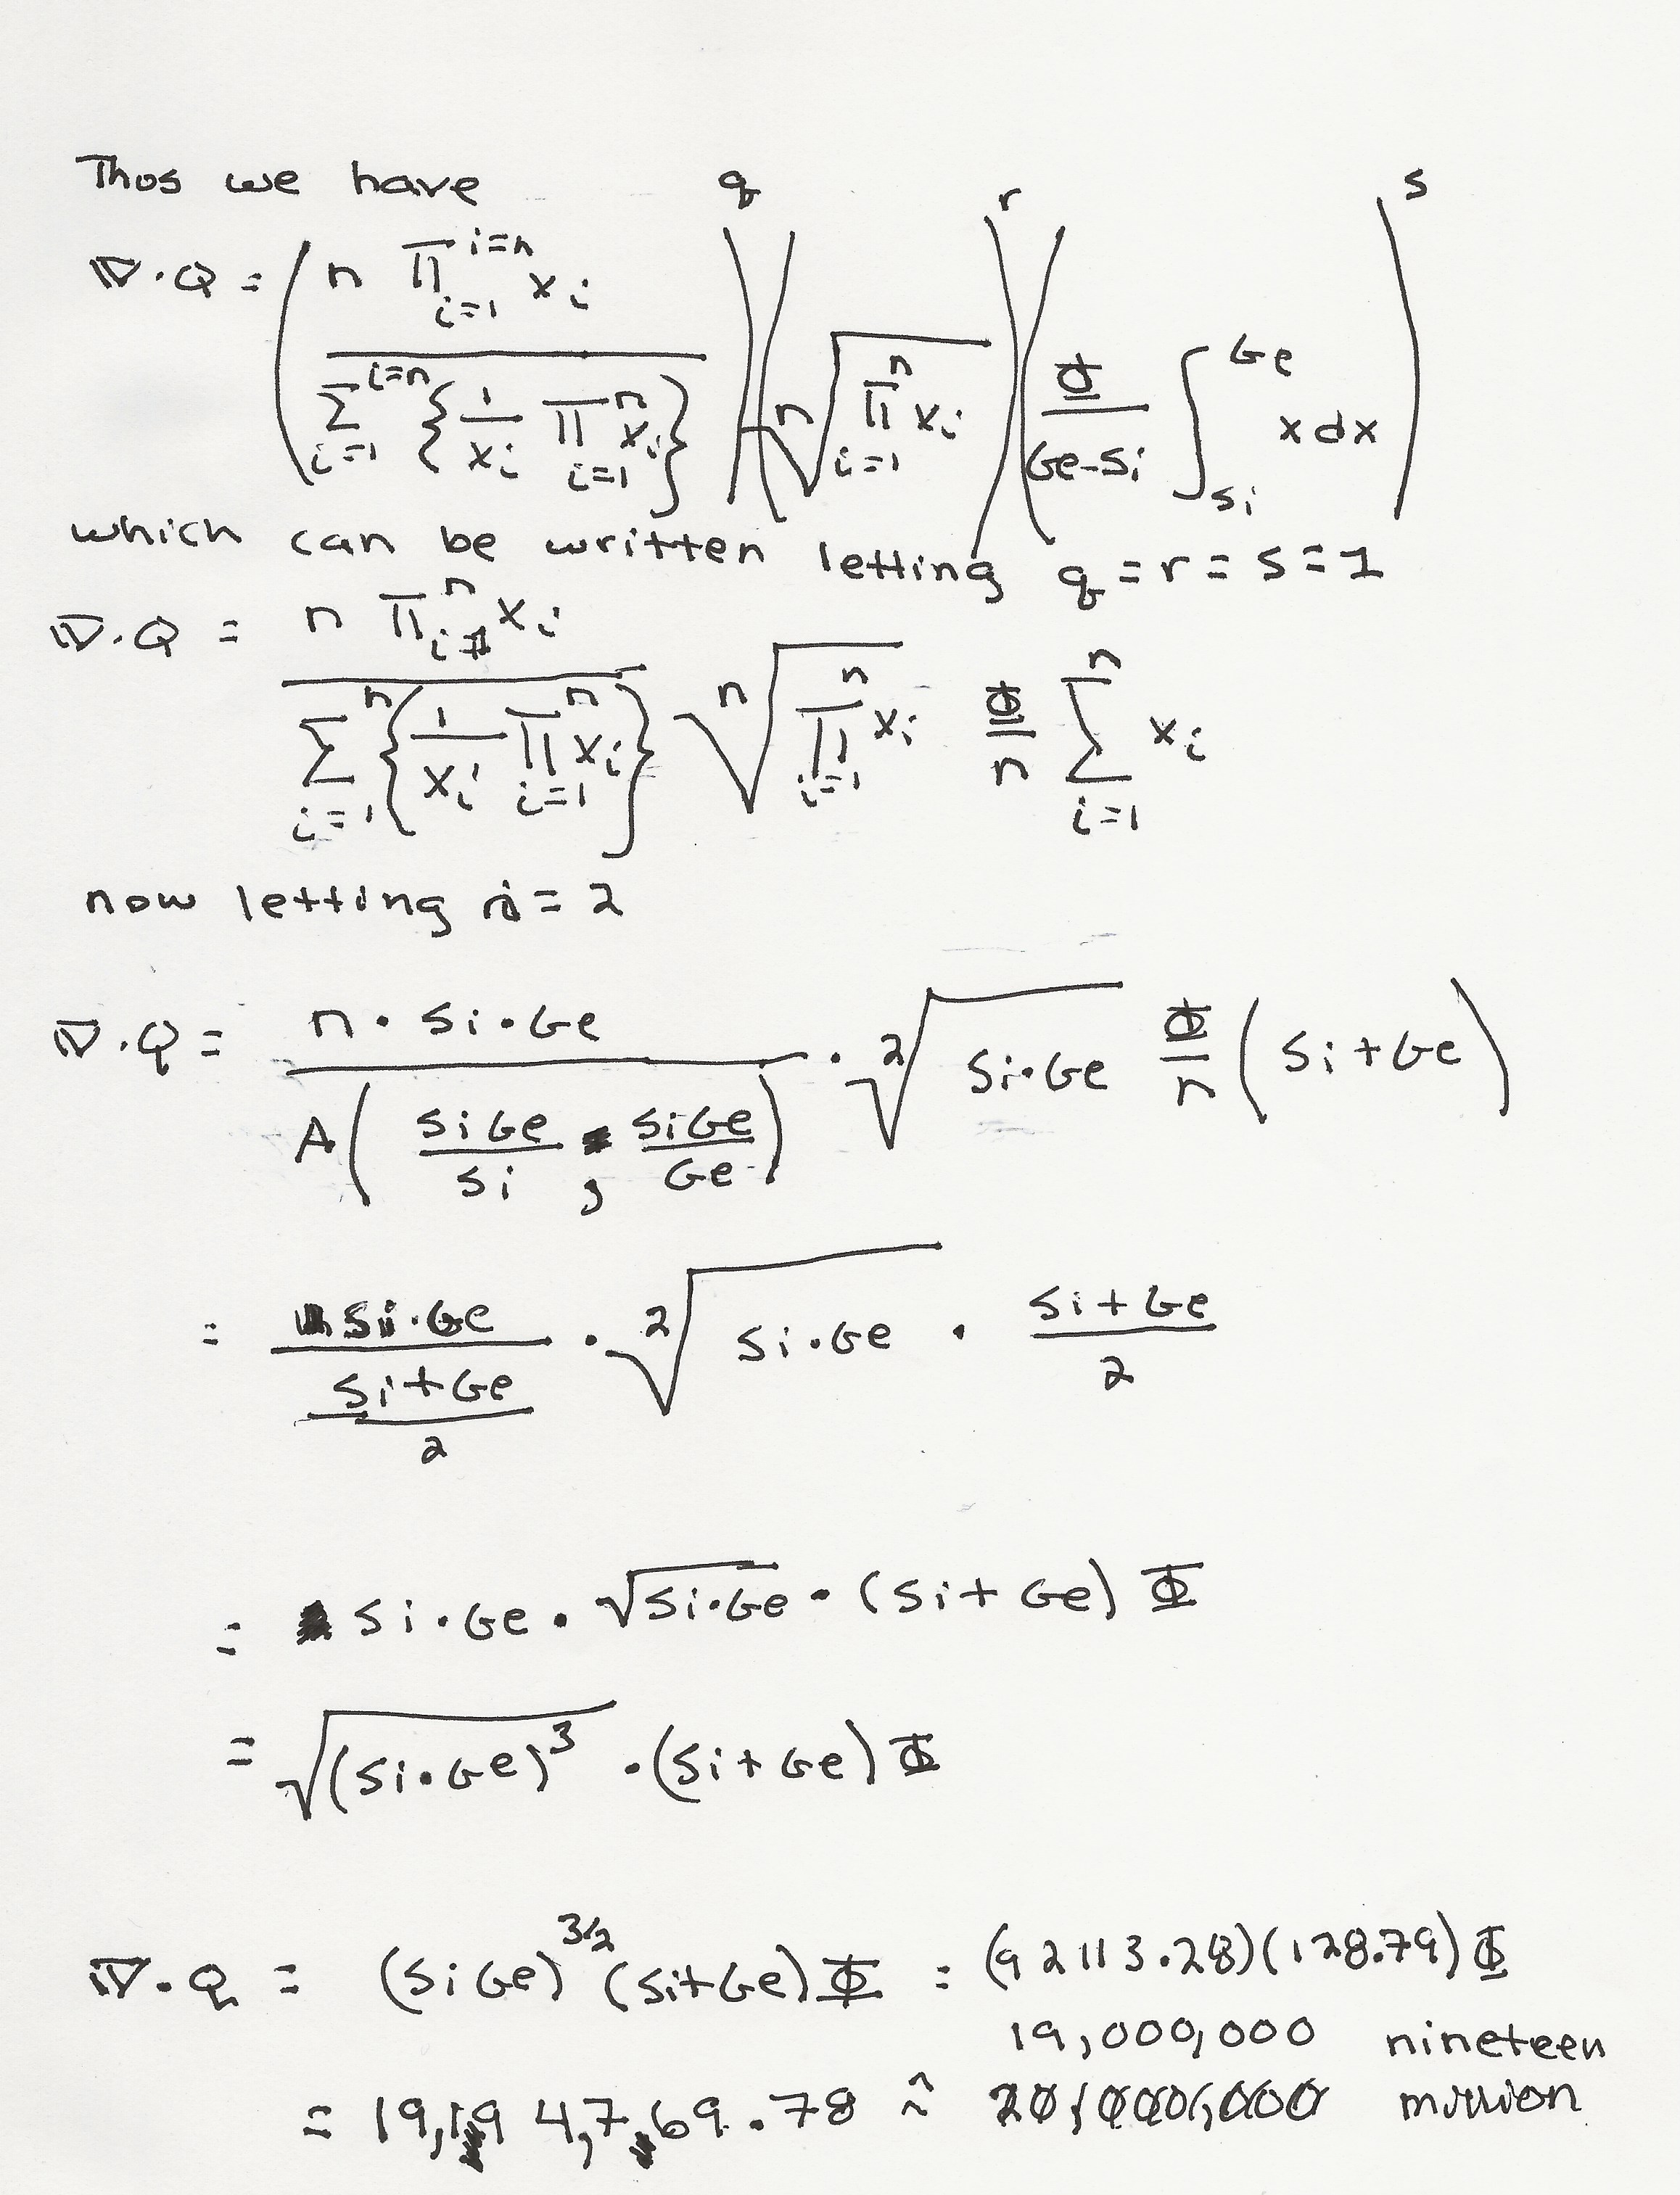 Thus we have
∇·Q = ( n ∏_{i=1}^{i=n} x_i / Σ_{i=1}^{i=n} { 1/x_i ∏_{i=1}^{n} x_i } )^q ( ⁿ√( ∏_{i=1}^{n} x_i ) )^r ( Φ/(Ge-Si) ∫_{Si}^{Ge} x dx )^s
which can be written letting q = r = s = 1
∇·Q = n ∏_{i=1}^{n} x_i / Σ_{i=1}^{n} { 1/x_i ∏_{i=1}^{n} x_i } ⁿ√( ∏_{i=1}^{n} x_i ) Φ/n Σ_{i=1}^{n} x_i
now letting n = 2
∇·Q = n·Si·Ge / A( SiGe/Si , SiGe/Ge ) · ²√( Si·Ge ) Φ/n ( Si + Ge )
= Si·Ge / ( (Si+Ge)/2 ) · ²√( Si·Ge ) · (Si+Ge)/2
= Si·Ge·√(Si·Ge)·(Si+Ge) Φ
= √((Si·Ge)³)·(Si+Ge) Φ
∇·Q = (SiGe)^{3/2} (Si+Ge) Φ = (92113.28)(128.79) Φ
19,000,000 nineteen
= 19,194,769.78 ≈ 20,000,000 million